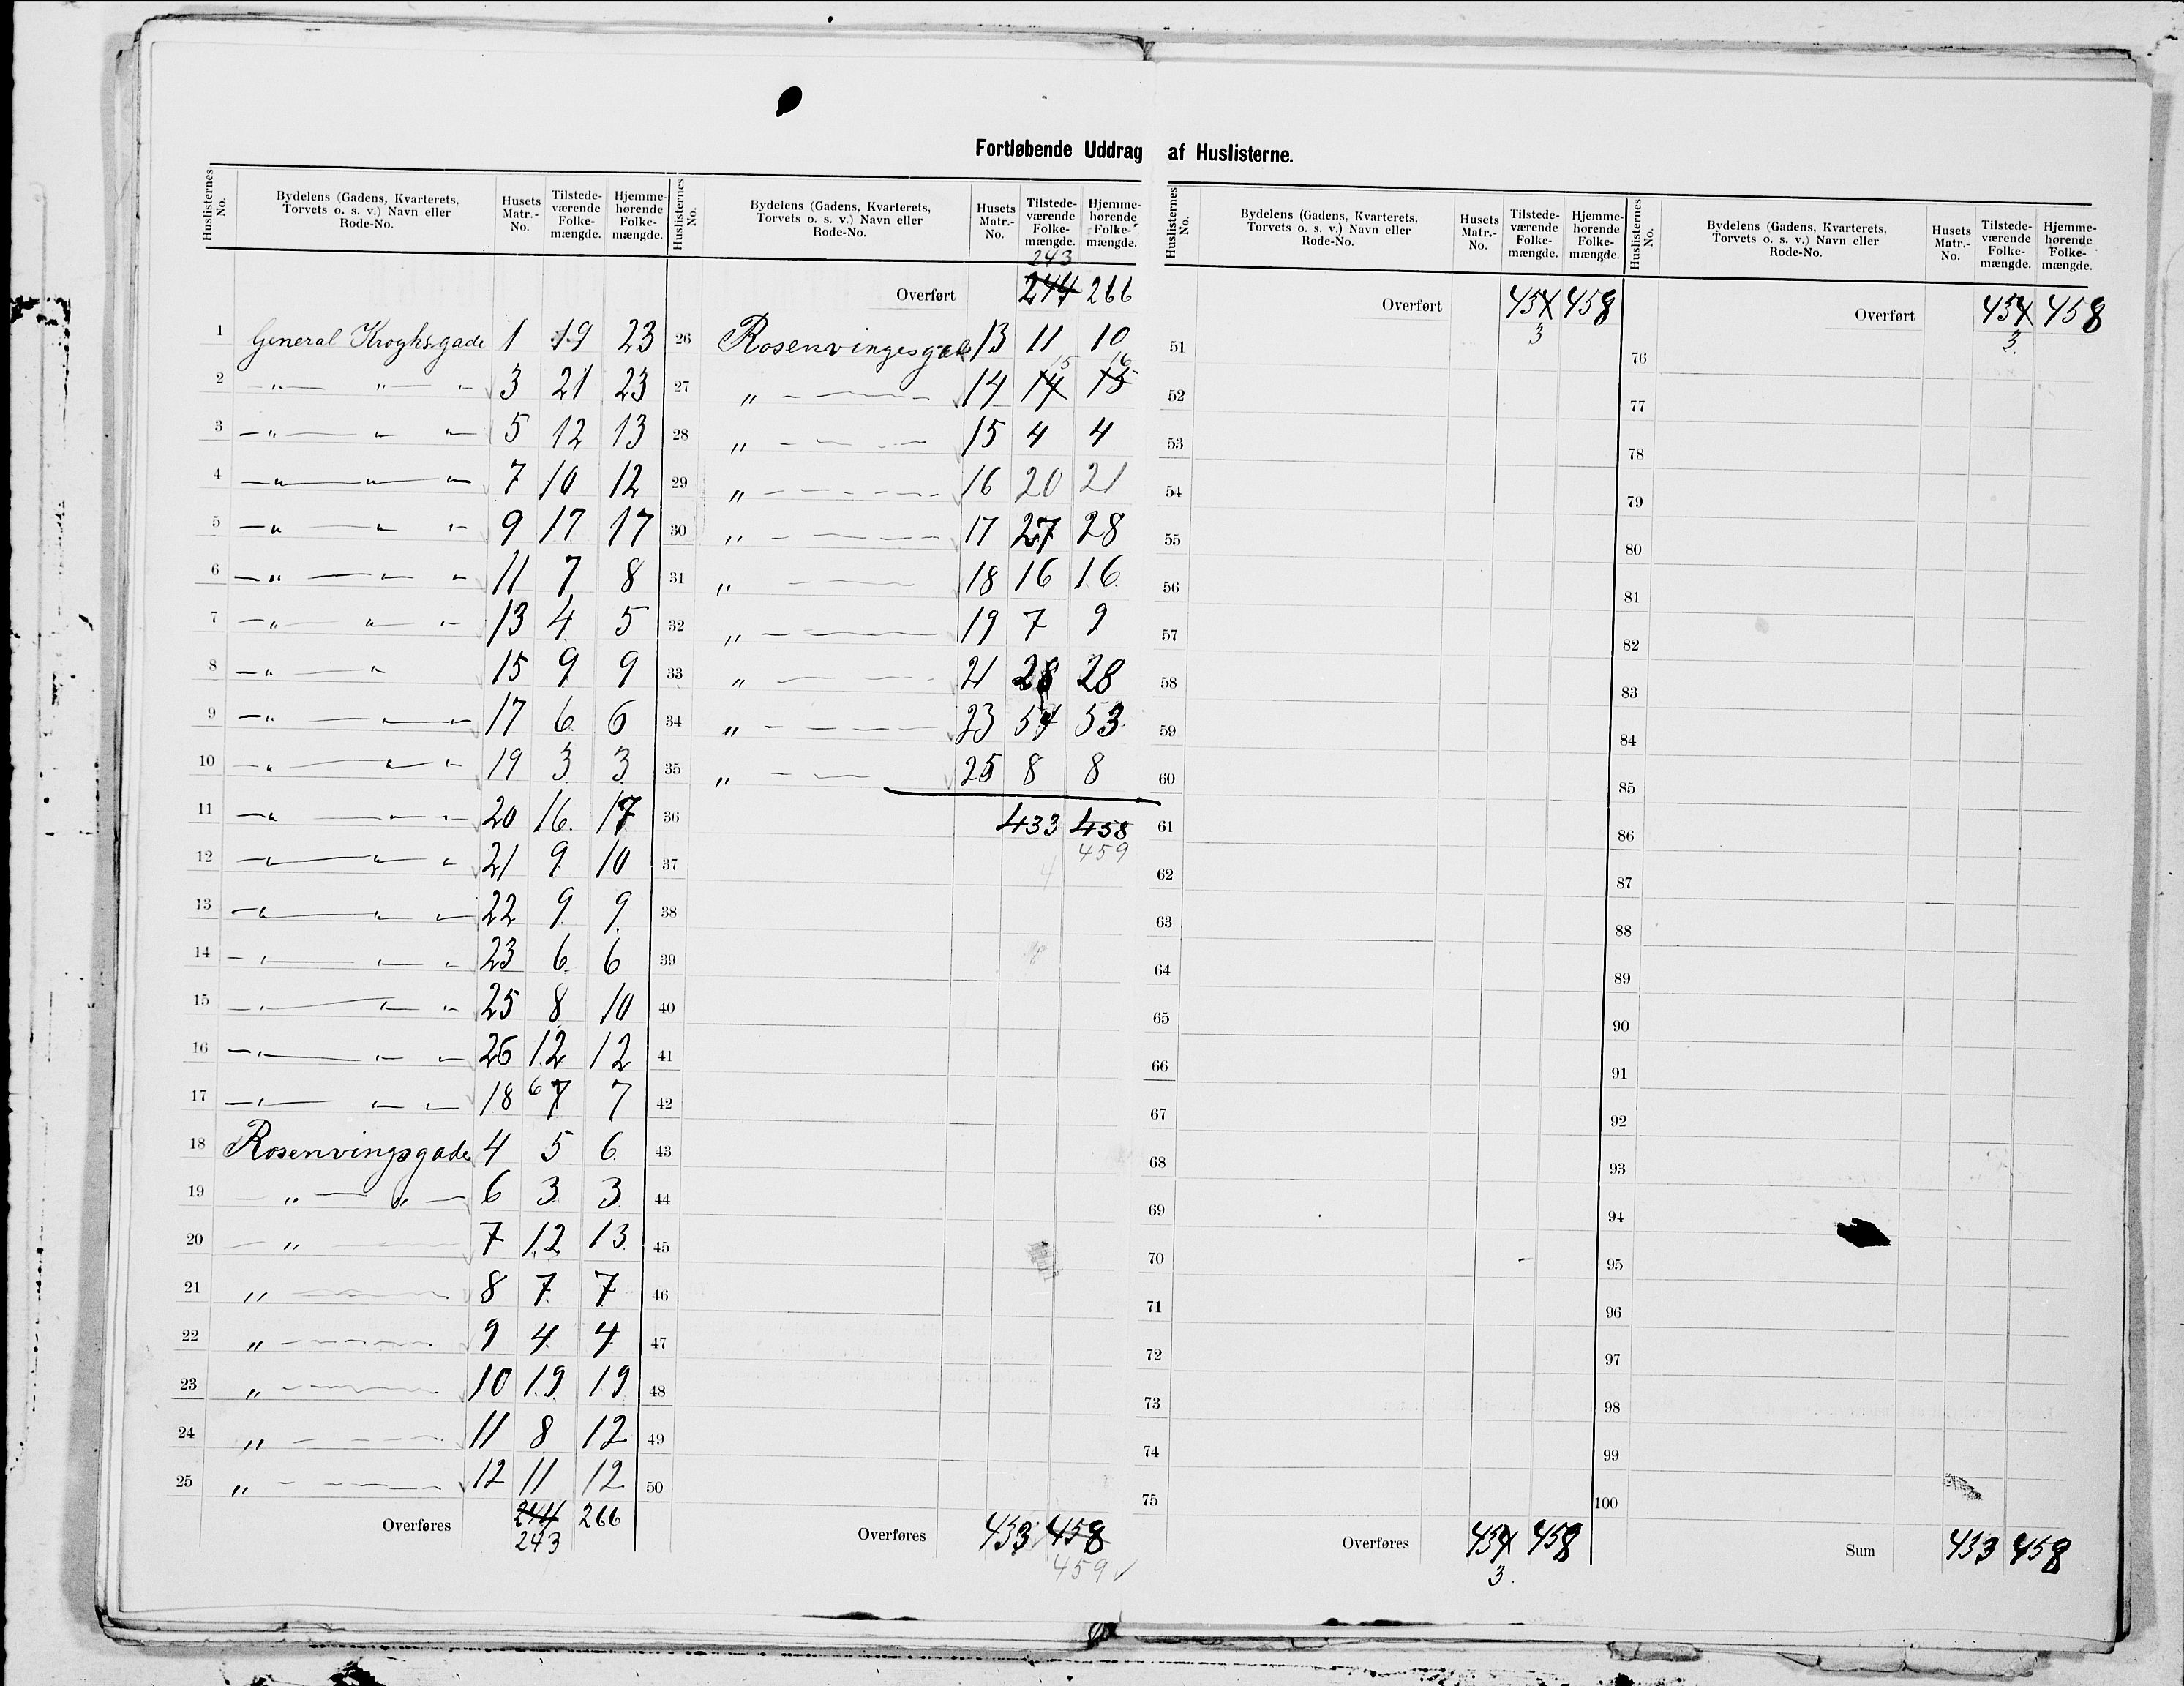 Fortløbende Uddrag af Huslisterne.
Huslisternes No. Bydelens (Gadens, Kvarterets, Torvets o. s. v.) Navn eller Rode-No. Husets Matr.-No. Tilstede-værende Folke-mængde. Hjemme-hørende Folke-mængde.
1 General Kroghsgade 1 19 23
2 —"— " " 3 21 23
3 —"— " " 5 12 13
4 —"— " " 7 10 12
5 —"— " " 9 17 17
6 —"— " " 11 7 8
7 —"— " " 13 4 5
8 —"— " 15 9 9
9 —"— " " 17 6 6
10 —"— " " 19 3 3
11 —"— " " 20 16 17
12 —"— " " 21 9 10
13 —"— " " 22 9 9
14 —"— " " 23 6 6
15 —"— " " 25 8 10
16 —"— " " 26 12 12
17 —"— " " 18 6 7 7
18 Rosenvingsgade 4 5 6
19 — " — " — 6 3 3
20 — " — 7 12 13
21 " — 8 7 7
22 " — 9 4 4
23 " — 10 19 19
24 " — 11 8 12
25 " — 12 11 12
Overføres 244 266
243
Huslisternes No. Bydelens (Gadens, Kvarterets, Torvets o. s. v.) Navn eller Rode-No. Husets Matr.-No. Tilstede-værende Folke-mængde. Hjemme-hørende Folke-mængde.
243
Overført 244 266
26 Rosenvingesgade 13 11 10
15 16
27 " — 14 14 15
28 " — 15 4 4
29 " — 16 20 21
30 " — 17 27 28
31 " — 18 16 16
32 " — 19 7 9
33 " — 21 28 28
34 " — 23 54 53
35 " — 25 8 8
36 433 458
459
37
38
39
40
41
42
43
44
45
46
47
48
49
50
Overføres 433 458
459
Huslisternes No. Bydelens (Gadens, Kvarterets, Torvets o. s. v.) Navn eller Rode-No. Husets Matr.-No. Tilstede-værende Folke-mængde. Hjemme-hørende Folke-mængde.
Overført 454 458
3
51
52
53
54
55
56
57
58
59
60
61
62
63
64
65
66
67
68
69
70
71
72
73
74
75
Overføres 434 458
3.
Huslisternes No. Bydelens (Gadens, Kvarterets, Torvets o. s. v.) Navn eller Rode-No. Husets Matr.-No. Tilstede-værende Folke-mængde. Hjemme-hørende Folke-mængde.
Overført 434 458
3.
76
77
78
79
80
81
82
83
84
85
86
87
88
89
90
91
92
93
94
95
96
97
98
99
100
Sum 433 458